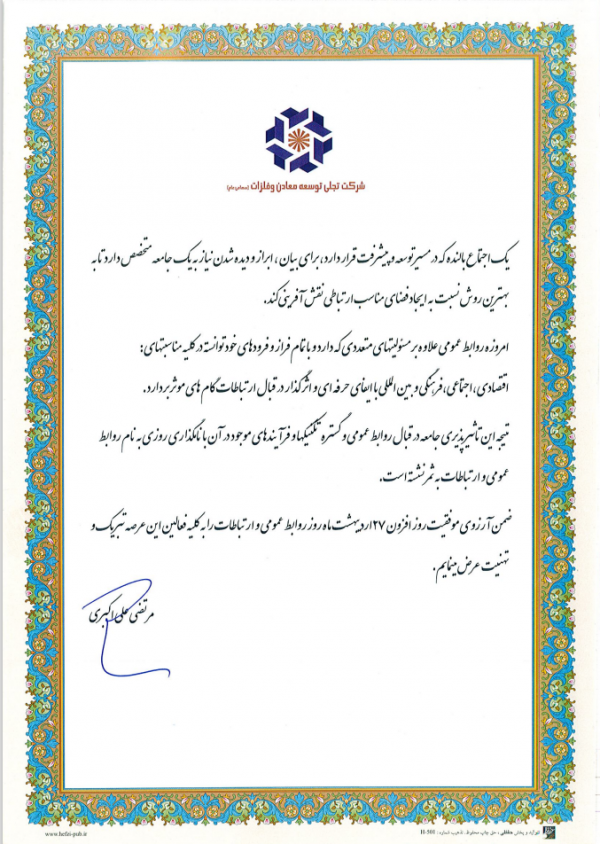 شرکت تجلی توسعه معادن و فلزات (سهامی عام)
یک اجتماع بالنده که در مسیر توسعه و پیشرفت قرار دارد، برای بیان، ابراز و دیده شدن نیاز به یک جامعه متخصص دارد تا به
بهترین روش نسبت به ایجاد فضای مناسب ارتباطی نقش آفرینی کند.
امروزه روابط عمومی علاوه بر مسئولیتهای متعددی که دارد و با تمام فراز و فرودهای خود توانسته در کلیه مناسبتهای:
اقتصادی، اجتماعی، فرهنگی و بین المللی با ایفای حرفه ای و اثرگذار در قبال ارتباطات گام های موثر بردارد.
نتیجه این تاثیرپذیری جامعه در قبال روابط عمومی و گستره تکنیکها و فرآیندهای موجود در آن با نامگذاری روزی به نام روابط
عمومی و ارتباطات به ثمر نشسته است.
ضمن آرزوی موفقیت روز افزون ۲۷ اردیبهشت ماه روز روابط عمومی و ارتباطات را به کلیه فعالین این عرصه تبریک و
تهنیت عرض مینمایم.
مرتضی علی اکبری
www.hefzi-pub.ir
حق چاپ محفوظ. تذهیب شماره: H-501